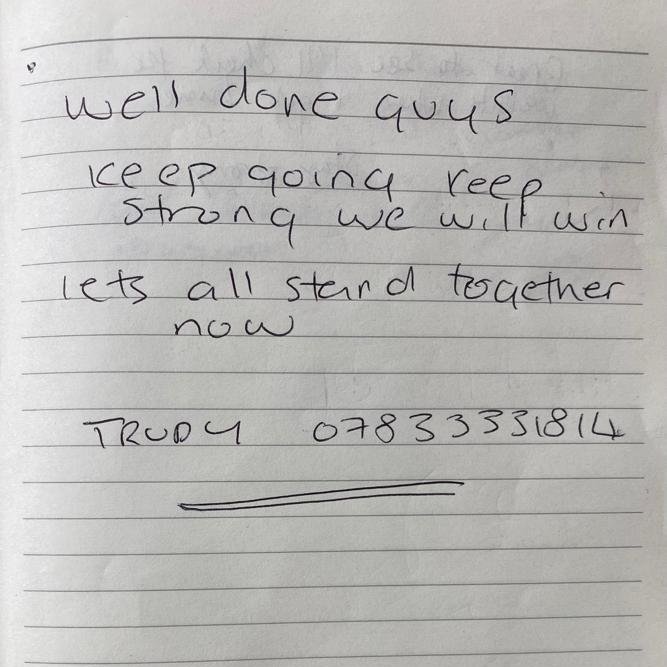 well done guys
keep going keep
strong we will win
lets all stand together
now
TRUDY 07833331814